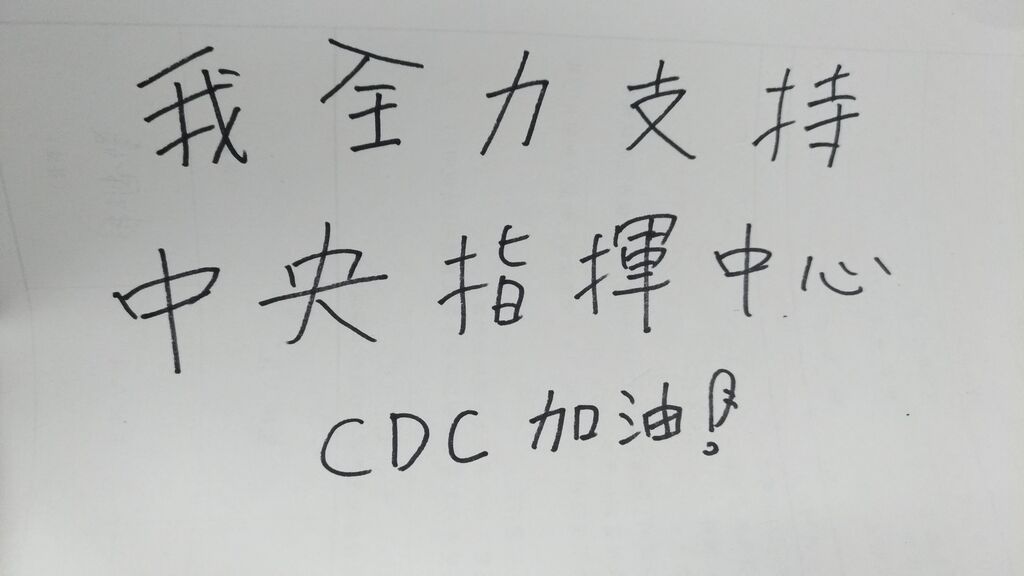 我全力支持
中央指揮中心
CDC 加油!